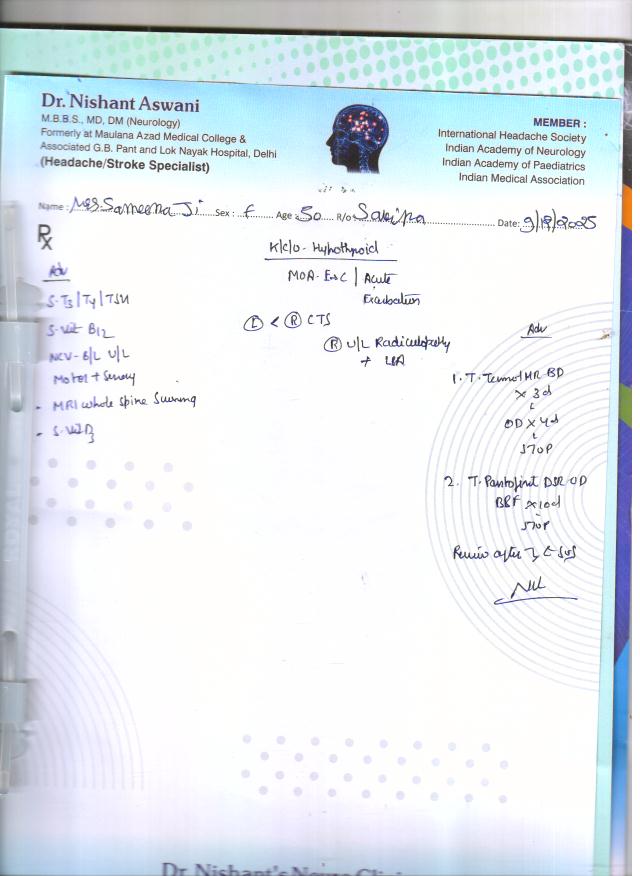 Dr. Nishant Aswani
M.B.B.S., MD, DM (Neurology)
Formerly at Maulana Azad Medical College &
Associated G.B. Pant and Lok Nayak Hospital, Delhi
(Headache/Stroke Specialist)
MEMBER :
International Headache Society
Indian Academy of Neurology
Indian Academy of Paediatrics
Indian Medical Association
Name : Mrs Sameena Ji Sex : f Age : 50 R/o Date: 2025
Rx
K/c/o - Hypothyroid
Adv
S. T3 | T4 | TSH
S. Vit B12
NCV - B/L U/L
Motor + Sensory
- MRI whole Spine Screening
- S. Vit D3
| Acute
Exacerbation
L < R CTS
R U/L Radiculopathy
+ LBA
Adv
1. T. MR BD
x 3d
↓
OD x 4d
↓
STOP
2. T. DSR OD
BBF x 10d
STOP
Review after
Dr. Nishant's Neuro Clini